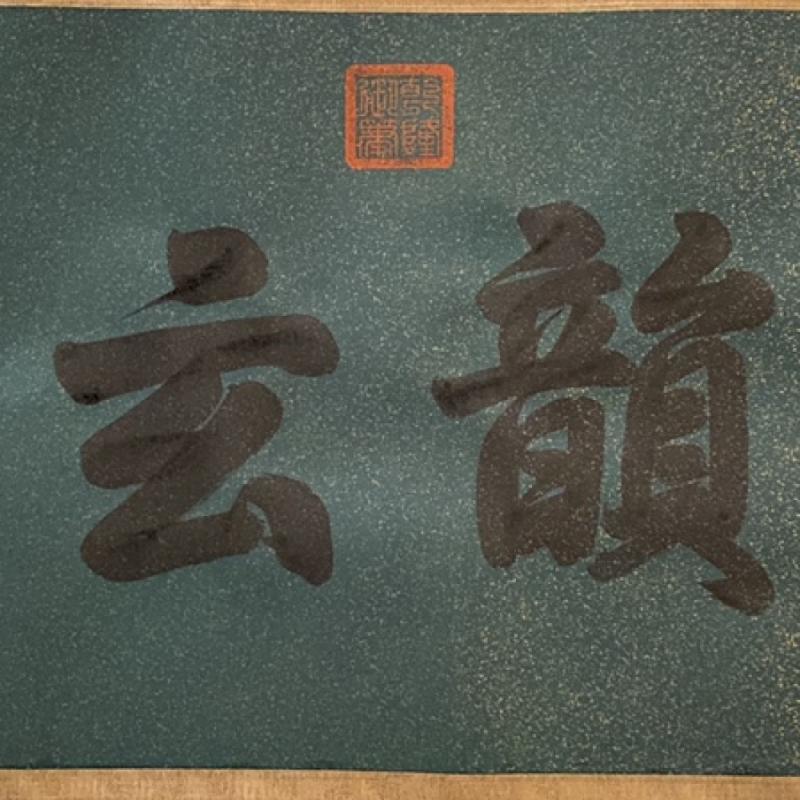 乾隆御筆
韻玄